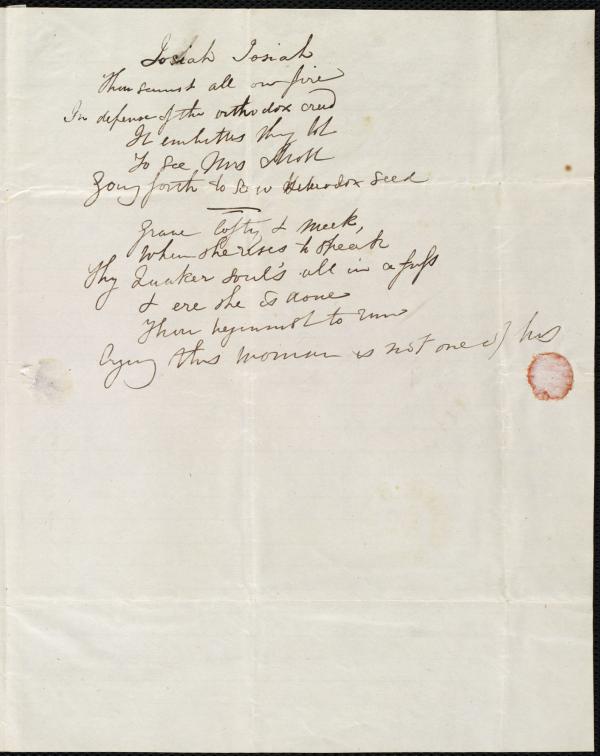 Josiah Josiah
Thou seemest all on fire
In defense of the orthodox creed
It embitters thy lot
To see Mrs Mott
Going forth to sow Heterodox seed
Grave lofty & meek,
When she rises to speak
Thy Quaker soul's all in a fuss
& ere she is done
Thou beginnest to run
Crying this woman is not one of hus